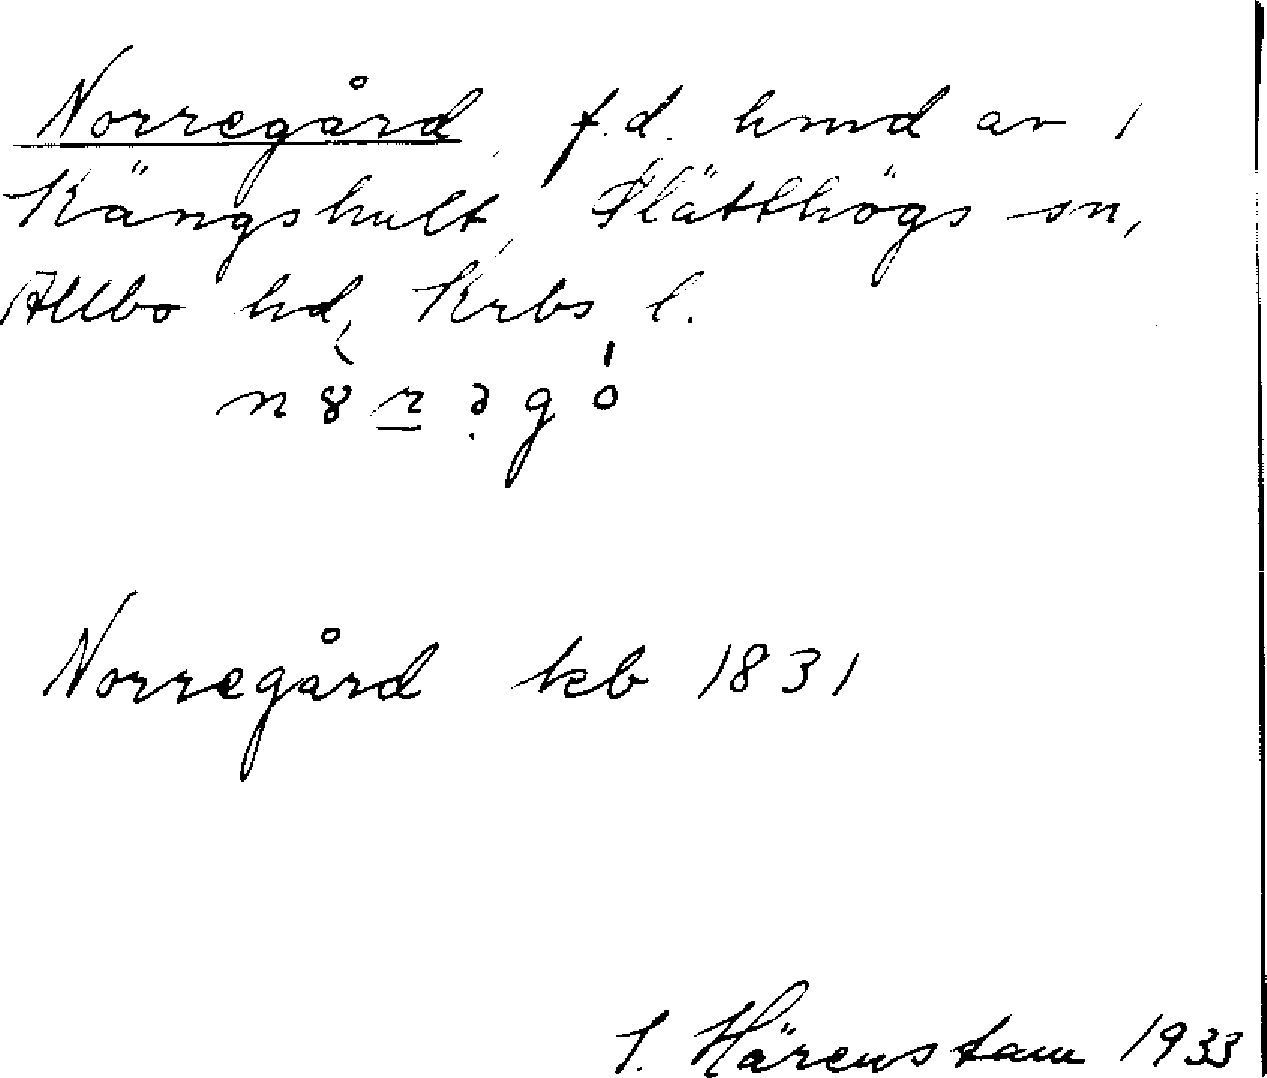 Norregård, f.d. hmd av 1
Kängshult, Slätthögs sn,
Allbo hd, Krbs l.
n8̀r̲ə̣gó
Norregård kb 1831
S. Härenstam 1933